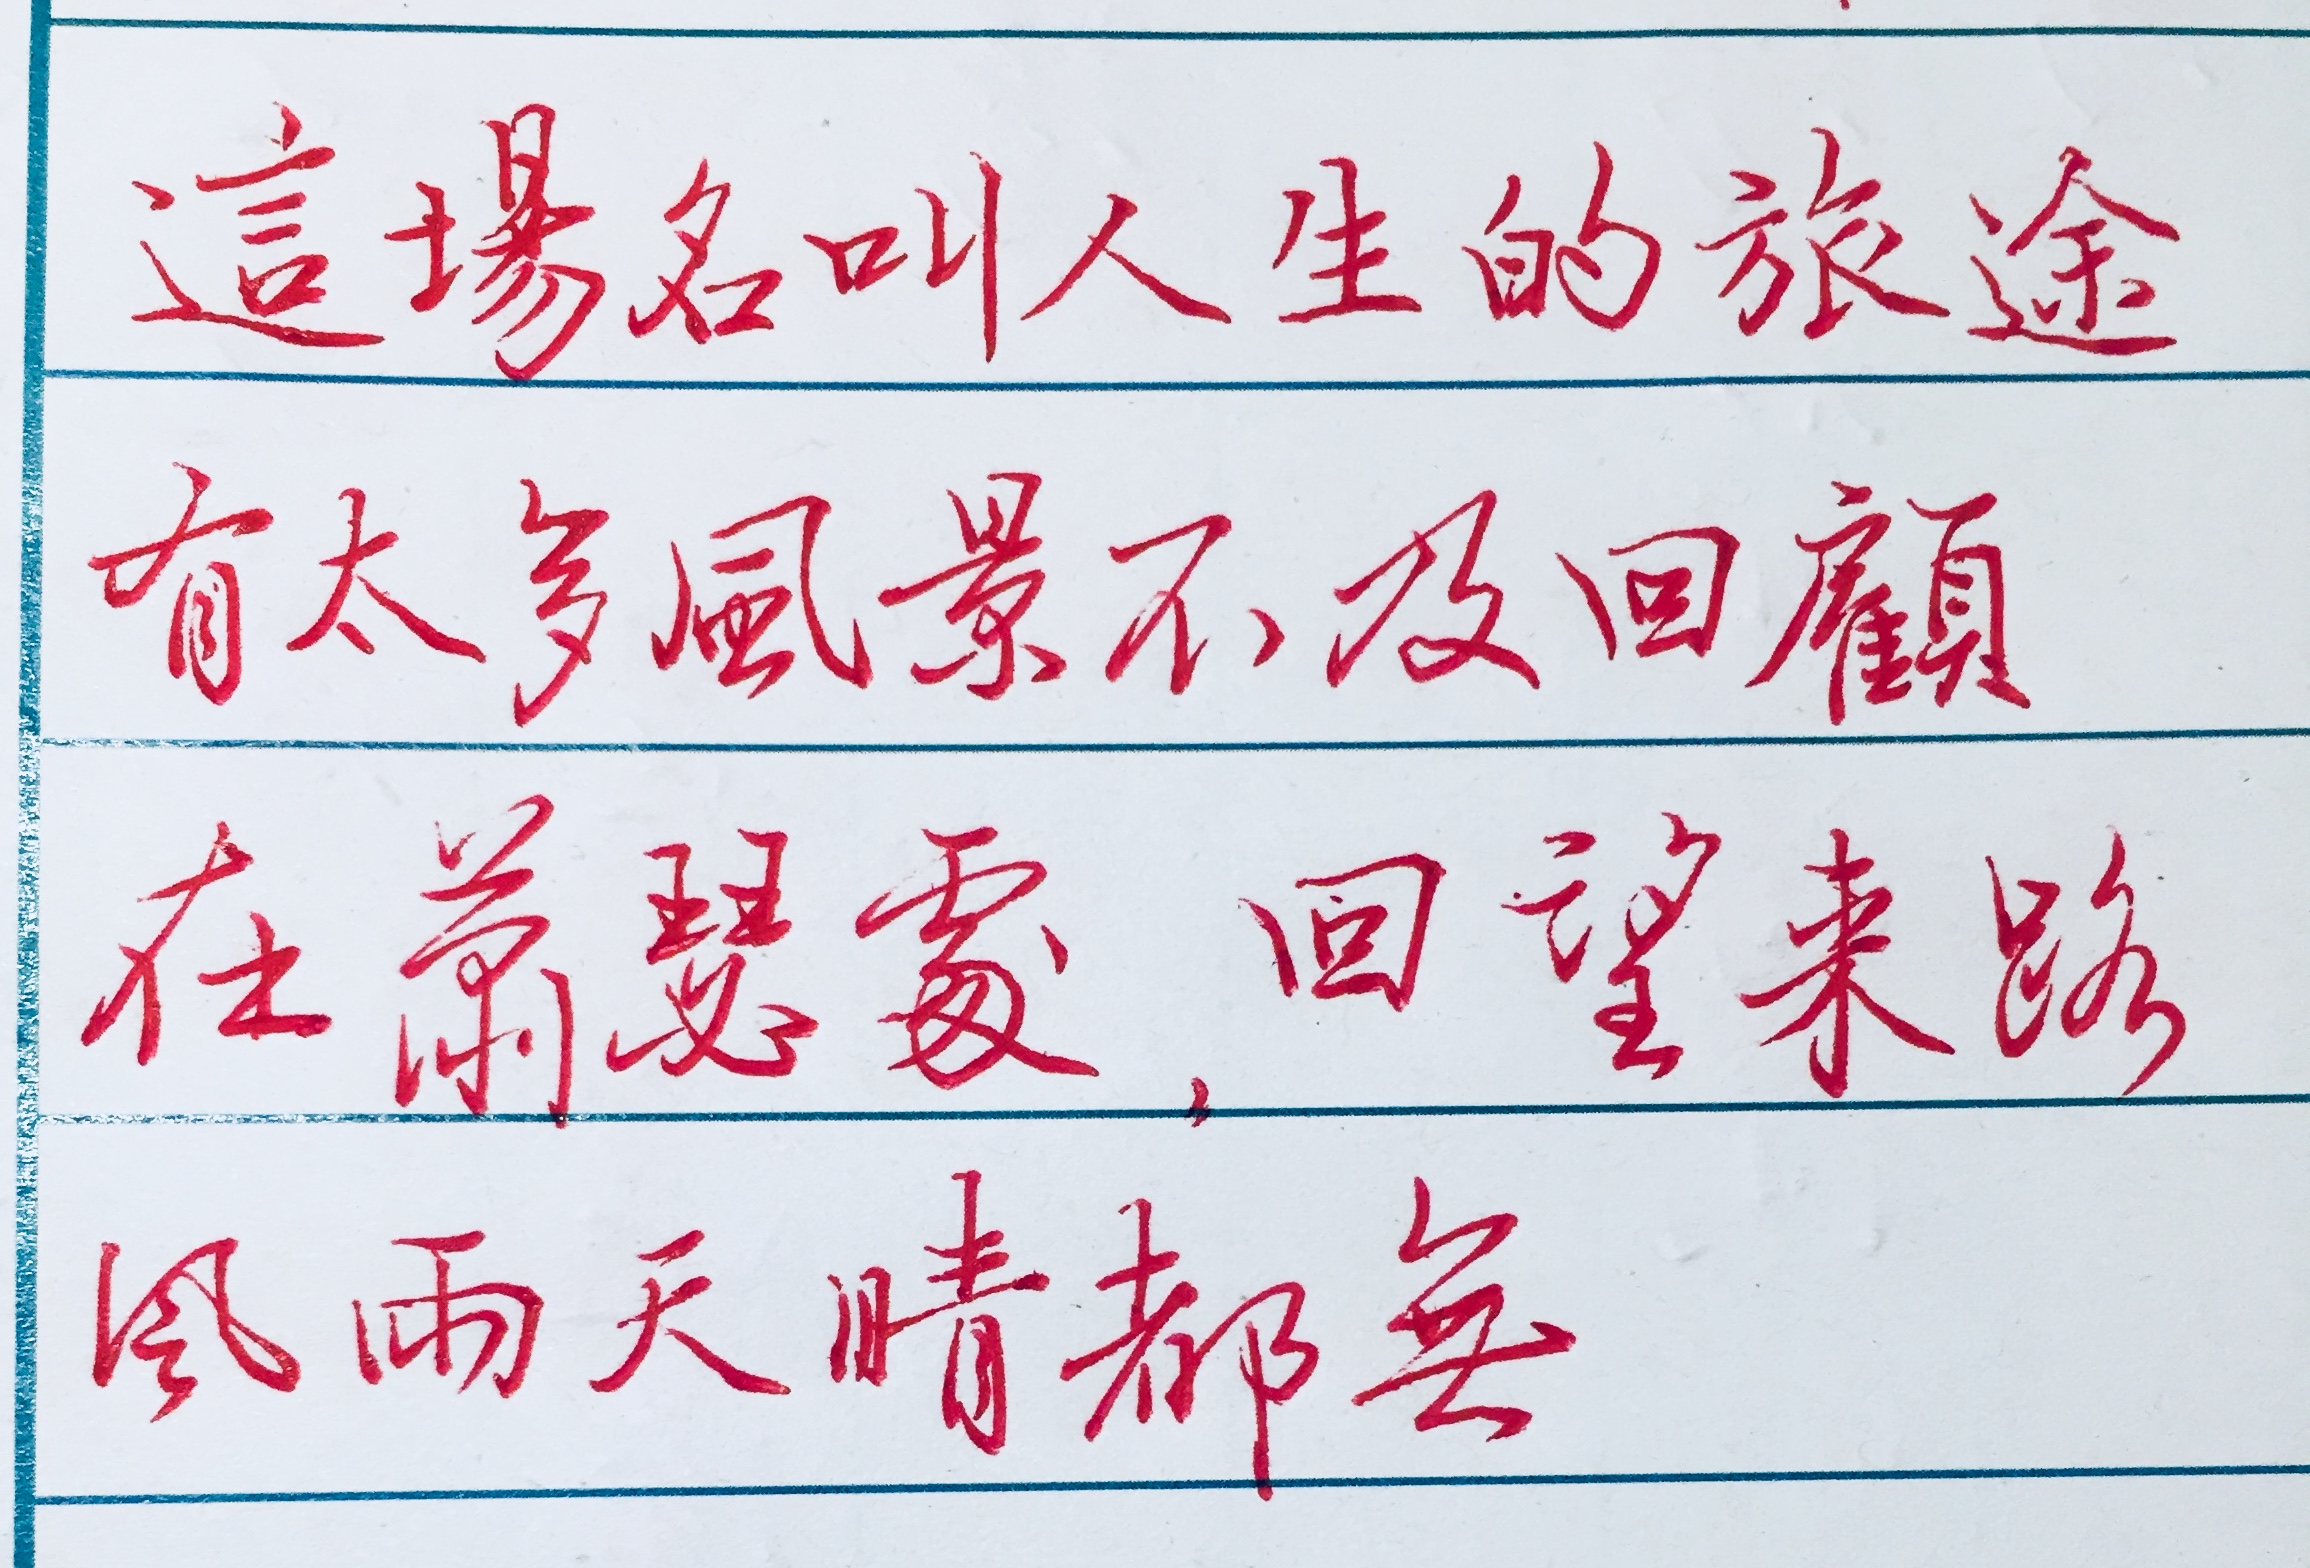 這場名叫人生的旅途
有太多風景不及回顧
在蕭瑟處，回望来路
風雨天晴都無